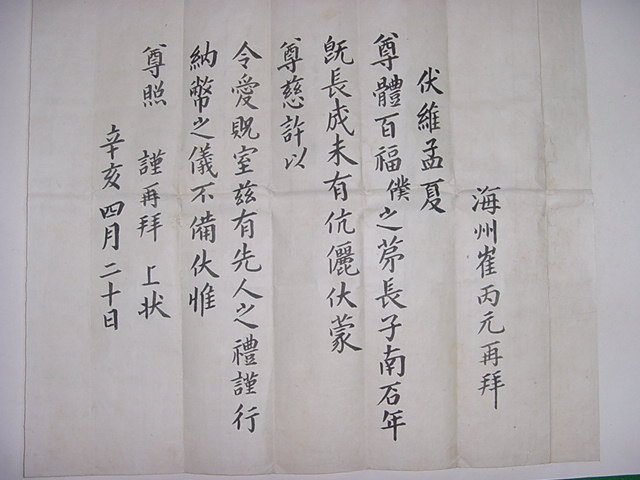 海州崔丙元再拜
伏維孟夏
尊體百福僕之苐長子南石年
旣長成未有伉儷伏蒙
尊慈許以
令愛貺室玆有先人之禮謹行
納幣之儀不備伏惟
尊照 謹再拜 上狀
辛亥四月二十日